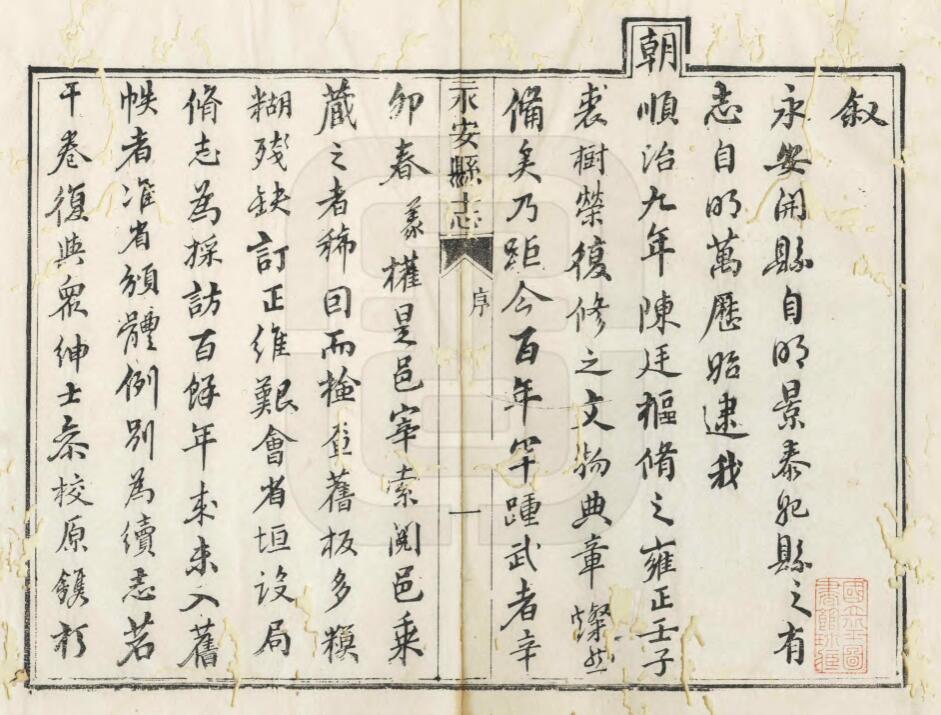 叙
永安開縣自明景泰始縣之有
志自明萬歷始逮我
朝
順治九年陳廷樞脩之雍正壬子
裘樹榮復修之文物典章燦然
備矣乃距今百年罕踵武者辛
永安縣志
序
一
卯春義權是邑宰索閱邑乘
藏之者稀因而檢查舊板多糢
糊殘缺訂正維艱會省垣設局
脩志為採訪百餘年來未入舊
帙者准省頒體例別為續志若
干卷復與衆紳士叅校原鐫打
國立北平圖
書館珍藏